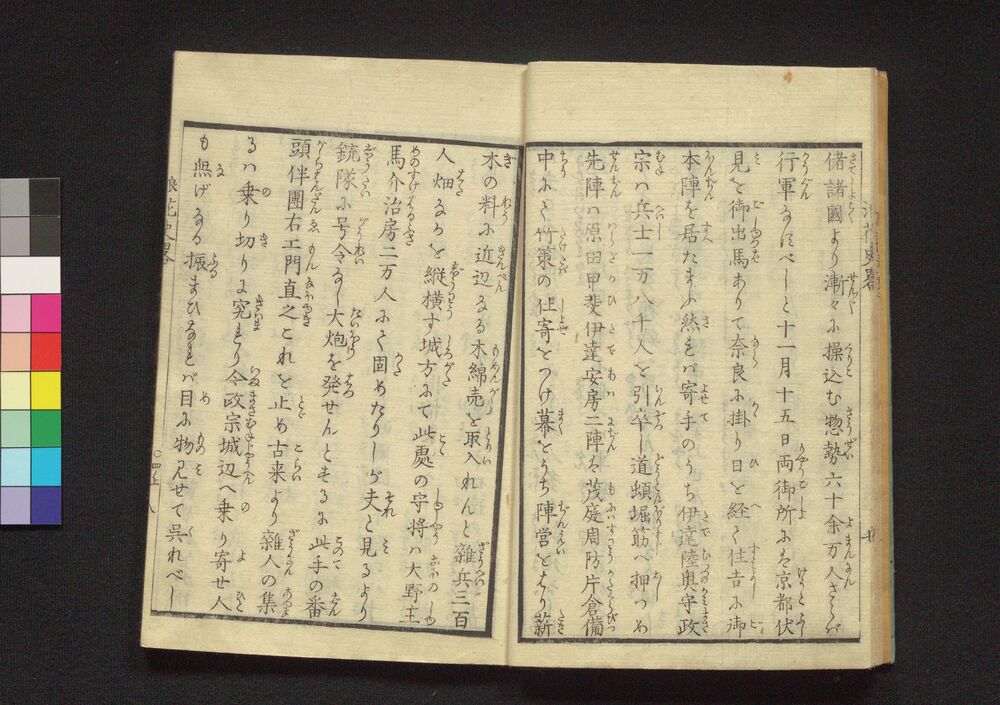 偖諸國より漸々に操込む惣勢六十余万人さらバ
行軍なすべしと十一月十五日両御所にも京都伏
見を御出馬ありて奈良に掛り日を経て住吉に御
本陣を居たまふ然れバ寄手のうち伊達陸奥守政
宗ハ兵士一万八千人を引卒し道頓堀筋へ押つめ
先陣ハ原田甲斐伊達安房二陣ハ茂庭周防片倉備
中にて竹策の仕寄をつけ幕をうち陣営をはり薪
木の料に近辺なる木綿売を取入れんと雜兵三百
人畑なかを縦横す城方にて此處の守将ハ大野主
馬介治房二万人にて固めたりしが夫と見るより
銃隊に号令なし大炮を発せんとするに此手の番
頭伴團右エ門直之これを止め古来より雜人の集
るハ乗り切りに究まり今政宗城辺へ乗り寄せ人
も無げなる振まひなれバ目に物見せて呉れべし
浪花史略